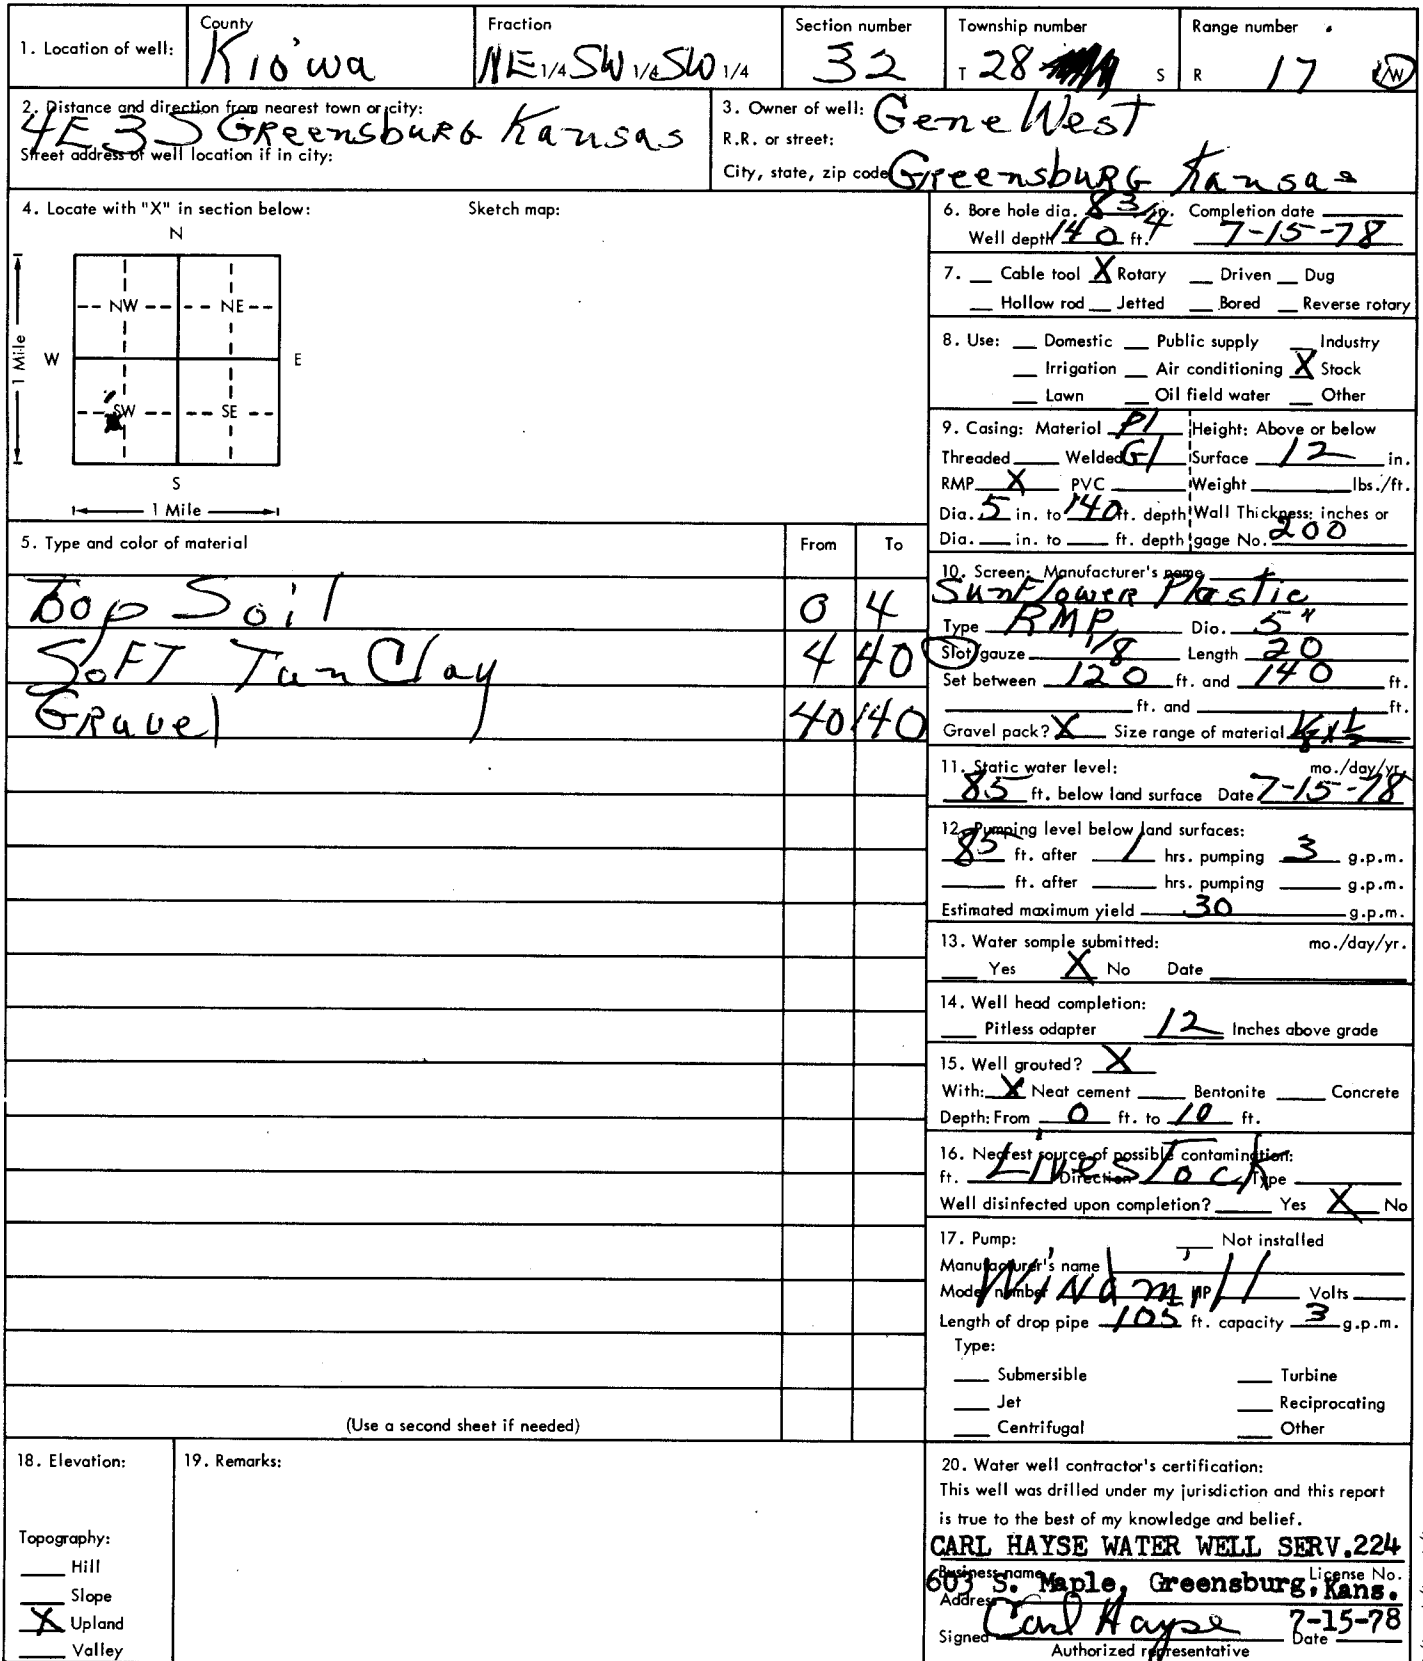 1. Location of well: County Kiowa Fraction NE 1/4 SW 1/4 SW 1/4 Section number 32 Township number T 28 S Range number R 17 W
2. Distance and direction from nearest town or city: 4E 3S Greensburg Kansas
Street address of well location if in city:
3. Owner of well: Gene West
R.R. or street:
City, state, zip code Greensburg Kansas
4. Locate with "X" in section below: Sketch map:
N
NW NE
W E
1 Mile
SW SE
S
1 Mile
5. Type and color of material From To
Top Soil 0 4
Soft Tan Clay 4 40
Gravel 40 140
(Use a second sheet if needed)
6. Bore hole dia. 8 3/4 in. Completion date
Well depth 140 ft. 7-15-78
7. Cable tool X Rotary Driven Dug
Hollow rod Jetted Bored Reverse rotary
8. Use: Domestic Public supply Industry
Irrigation Air conditioning X Stock
Lawn Oil field water Other
9. Casing: Material Pl Height: Above or below
Threaded Welded Gl Surface 12 in.
RMP X PVC Weight lbs./ft.
Dia. 5 in. to 140 ft. depth Wall Thickness: inches or
Dia. in. to ft. depth gage No. 200
10. Screen: Manufacturer's name
Sunflower Plastic
Type RMP Dia. 5"
Slot gauze 1/8 Length 20
Set between 120 ft. and 140 ft.
ft. and ft.
Gravel pack? X Size range of material 1/8 x 1/2
11. Static water level: mo./day/yr.
85 ft. below land surface Date 7-15-78
12. Pumping level below land surfaces:
85 ft. after 1 hrs. pumping 3 g.p.m.
ft. after hrs. pumping g.p.m.
Estimated maximum yield 30 g.p.m.
13. Water sample submitted: mo./day/yr.
Yes X No Date
14. Well head completion:
Pitless adapter 12 Inches above grade
15. Well grouted? X
With: X Neat cement Bentonite Concrete
Depth: From 0 ft. to 10 ft.
16. Nearest source of possible contamination:
ft. Livestock Direction Type
Well disinfected upon completion? Yes X No
17. Pump: Not installed
Manufacturer's name
Model number Windmill HP Volts
Length of drop pipe 105 ft. capacity 3 g.p.m.
Type:
Submersible Turbine
Jet Reciprocating
Centrifugal Other
18. Elevation:
Topography:
Hill
Slope
X Upland
Valley
19. Remarks:
20. Water well contractor's certification:
This well was drilled under my jurisdiction and this report
is true to the best of my knowledge and belief.
CARL HAYSE WATER WELL SERV. 224
Business name License No.
603 S. Maple, Greensburg, Kans.
Address
Signed Carl Hayse Date 7-15-78
Authorized representative